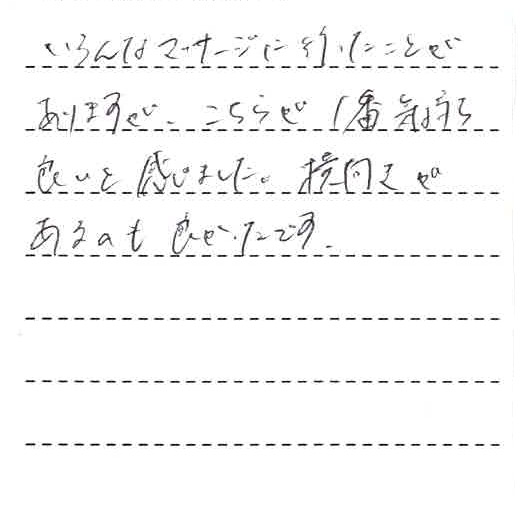 いろんなマッサージに行ったことが
ありますが、こちらが1番気持ち
良いと感じました。横向きが
あるのも良かったです。